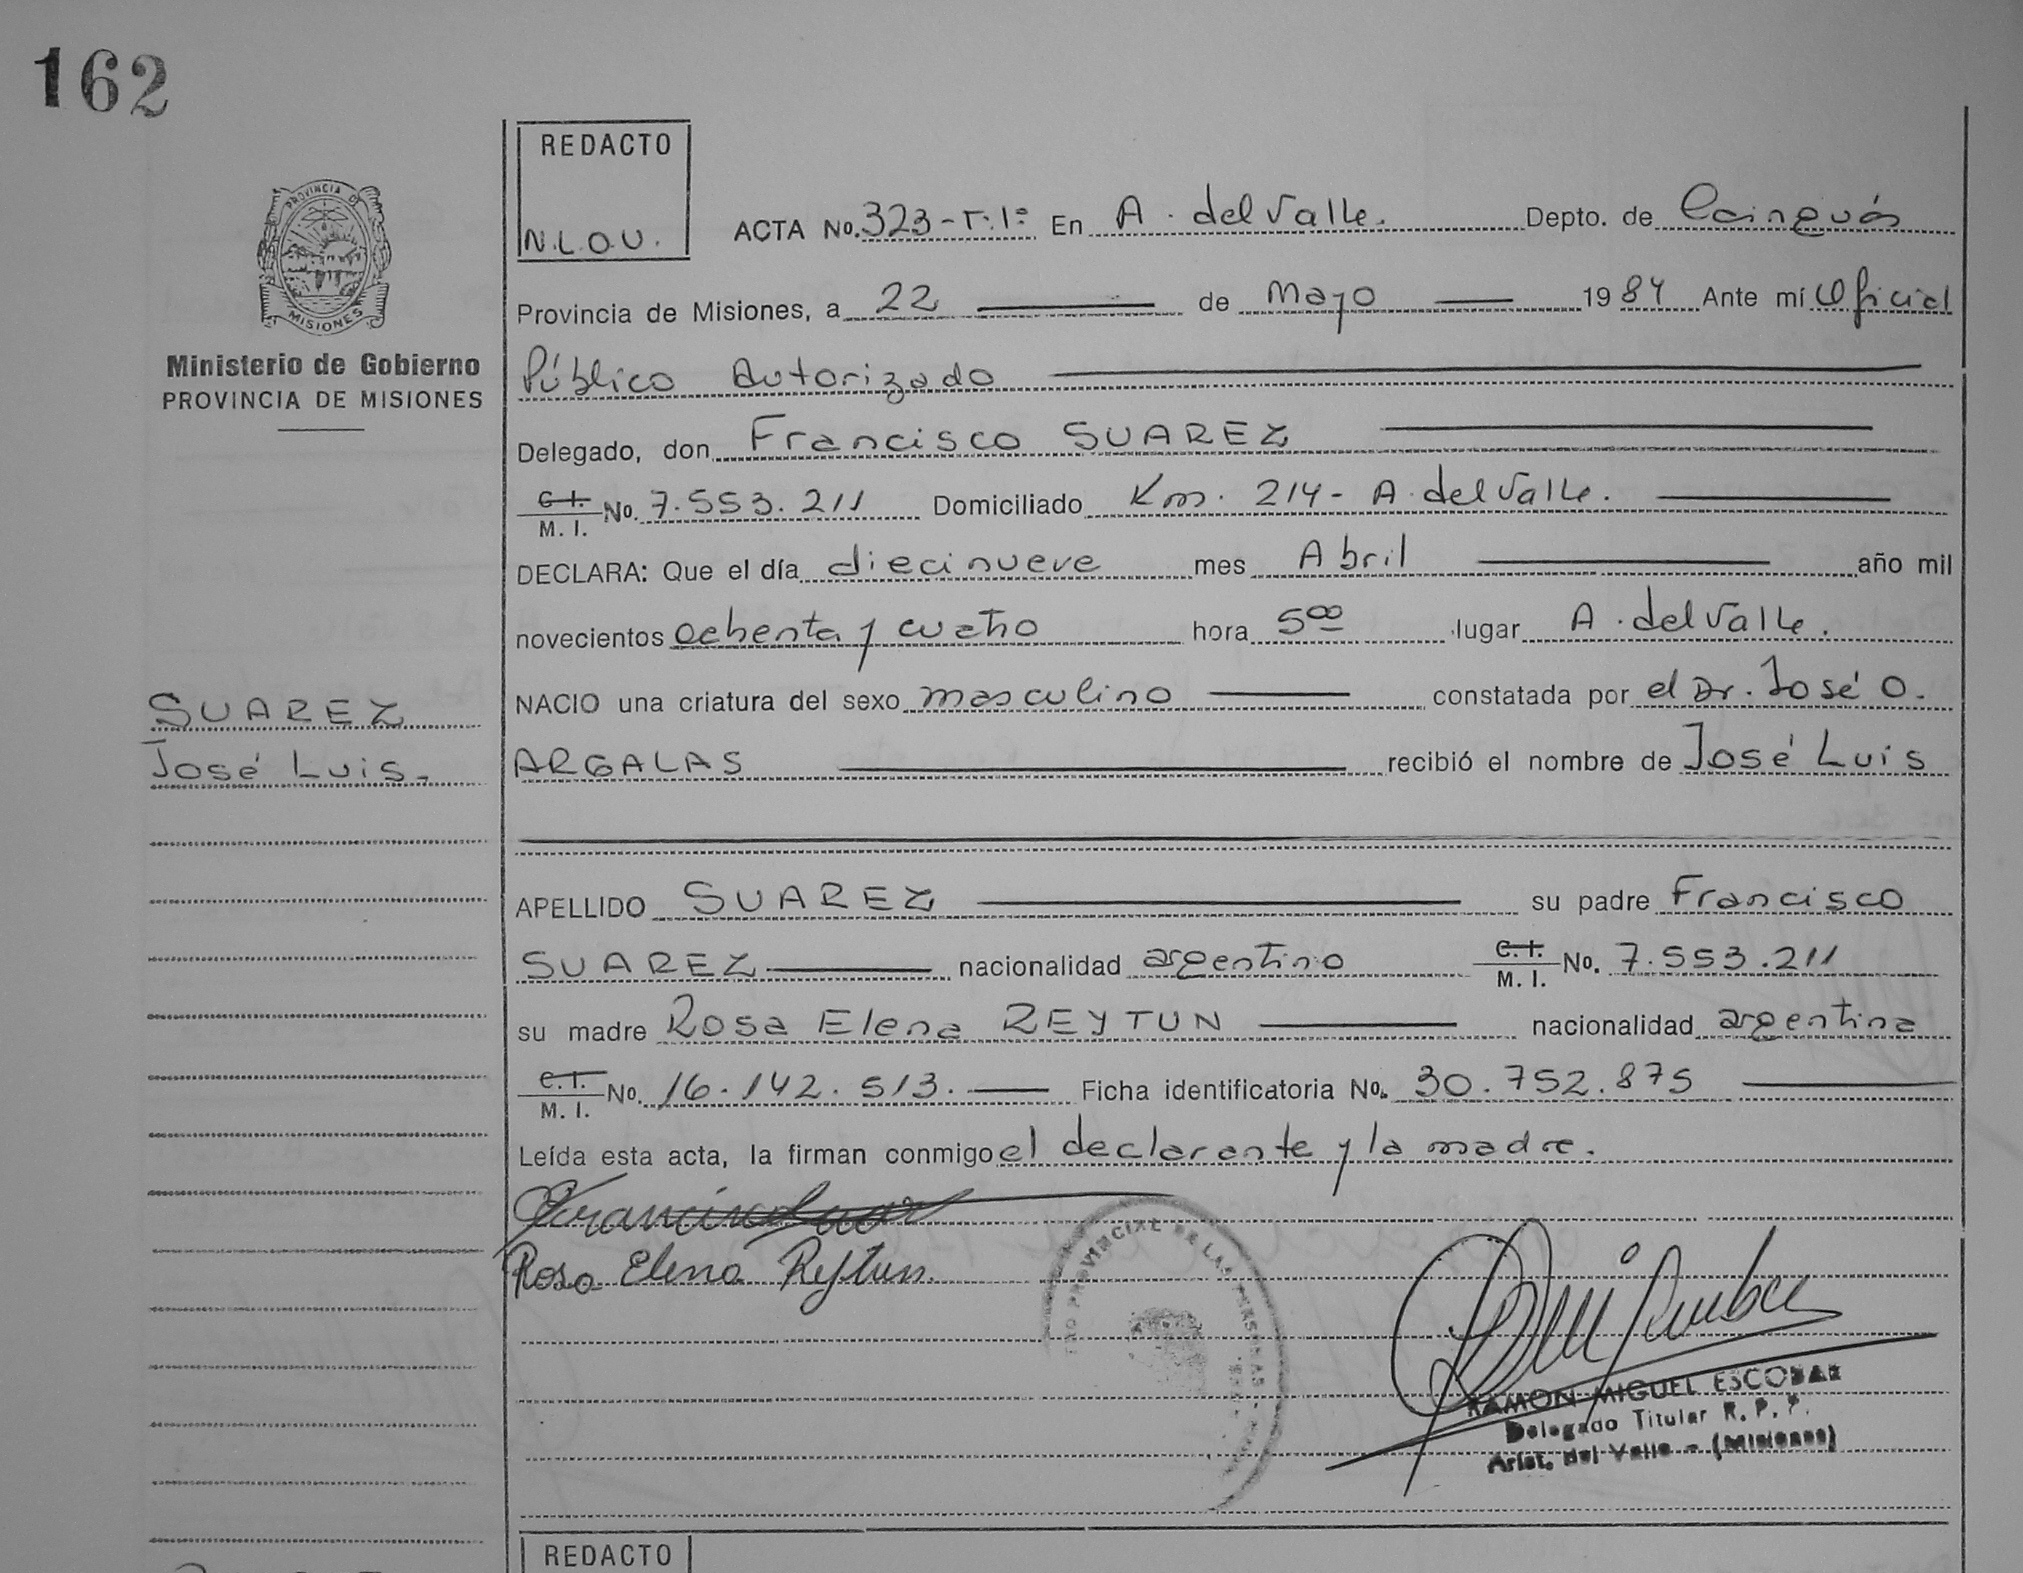 162
REDACTO
N.L.O.U.
PROVINCIA DE
MISIONES
Ministerio de Gobierno
PROVINCIA DE MISIONES
SUAREZ
José Luis.-
ACTA No. 323-T:1º En A. del Valle. Depto. de Cainguás
Provincia de Misiones, a 22 de Mayo 1984 Ante mí Oficial
Público Autorizado
Delegado, don Francisco SUAREZ
C.I. M.I. No. 7.553.211 Domiciliado Km. 214- A. del Valle.
DECLARA: Que el día diecinueve mes Abril año mil
novecientos ochenta y cuatro hora 5⁰⁰ lugar A. del Valle.
NACIO una criatura del sexo masculino constatada por el Dr. José O.
ARGALAS recibió el nombre de José Luis
APELLIDO SUAREZ su padre Francisco
SUAREZ nacionalidad argentino C.I. M.I. No. 7.553.211
su madre Rosa Elena REYTUN nacionalidad argentina
C.I. M.I. No. 16.142.513. Ficha identificatoria No. 30.752.875
Leída esta acta, la firman conmigo el declarante y la madre.
Rosa Elena Reytun.
PROVINCIAL DE LAS PERSONAS
RAMON MIGUEL ESCOBAR
Delegado Titular R. P. P.
Arist. del Valle - (Misiones)
REDACTO